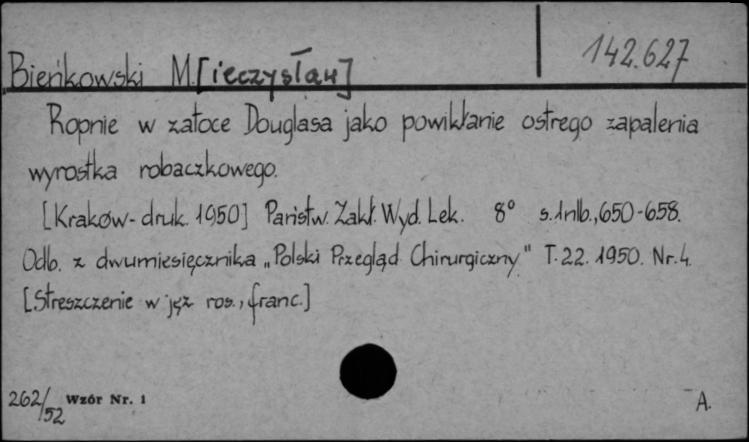 142.627
Bieńkowski M.[ieczysław]
Ropnie w zatoce Douglasa jako powikłanie ostrego zapalenia
wyrostka robaczkowego.
[Kraków- druk. 1950] Państw. Zakł. Wyd. Lek. 8° s. 1nlb., 650-658.
Odb. z dwumiesięcznika „Polski Przegląd Chirurgiczny" T. 22. 1950. Nr. 4.
[Streszczenie w jęz ros., franc.]
262/52 Wzór Nr. 1 A.